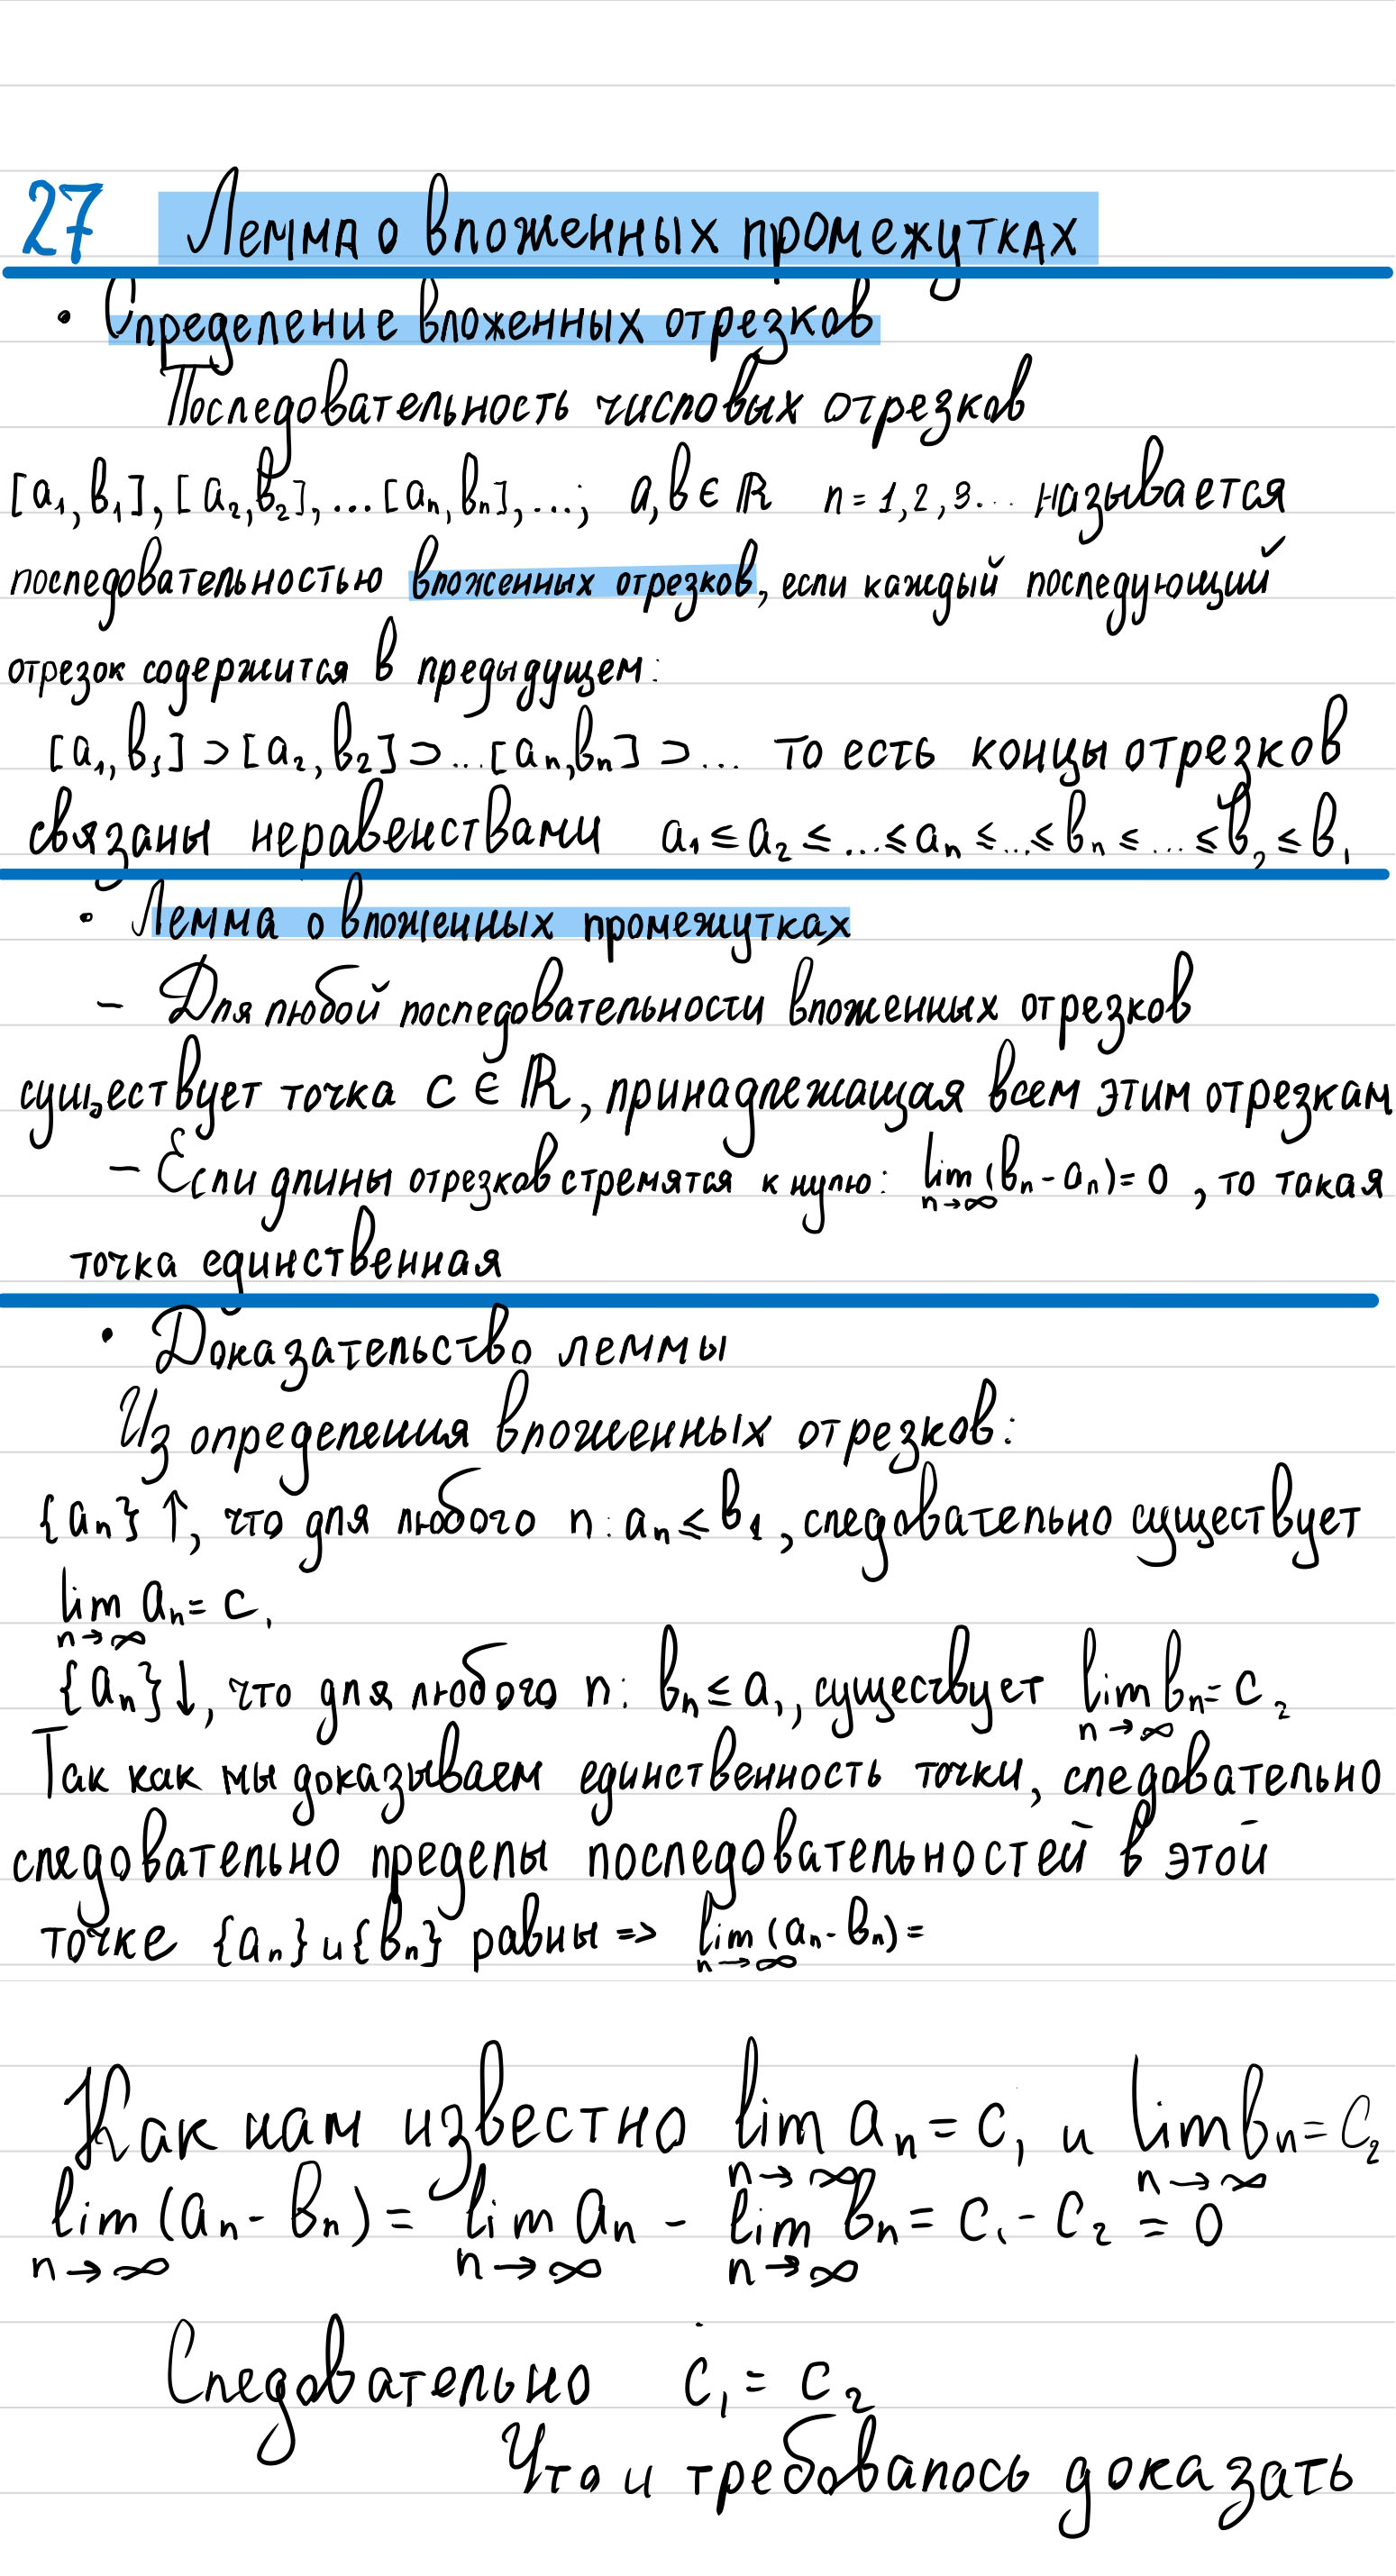 27 Лемма о вложенных промежутках
• Определение вложенных отрезков
Последовательность числовых отрезков
[a₁, b₁], [a₂, b₂], ... [aₙ, bₙ], ...; a, b ∈ ℝ n = 1, 2, 3... называется
последовательностью вложенных отрезков, если каждый последующий
отрезок содержится в предыдущем:
[a₁, b₁] ⊃ [a₂, b₂] ⊃ ... [aₙ, bₙ] ⊃ ... то есть концы отрезков
связаны неравенствами a₁ ≤ a₂ ≤ ... ≤ aₙ ≤ ... ≤ bₙ ≤ ... ≤ b₂ ≤ b₁
• Лемма о вложенных промежутках
– Для любой последовательности вложенных отрезков
существует точка C ∈ ℝ, принадлежащая всем этим отрезкам
– Если длины отрезков стремятся к нулю: lim n→∞ (bₙ - aₙ) = 0, то такая
точка единственная
• Доказательство леммы
Из определения вложенных отрезков:
{aₙ} ↑, что для любого n: aₙ ≤ b₁, следовательно существует
lim n→∞ aₙ = c₁
{aₙ} ↓, что для любого n: bₙ ≤ a₁, существует lim n→∞ bₙ = c₂
Так как мы доказываем единственность точки, следовательно
следовательно пределы последовательностей в этой
точке {aₙ} и {bₙ} равны => lim n→∞ (aₙ - bₙ) =
Как нам известно lim n→∞ aₙ = c₁ и lim n→∞ bₙ = c₂
lim n→∞ (aₙ - bₙ) = lim n→∞ aₙ - lim n→∞ bₙ = c₁ - c₂ = 0
Следовательно c₁ = c₂
Что и требовалось доказать